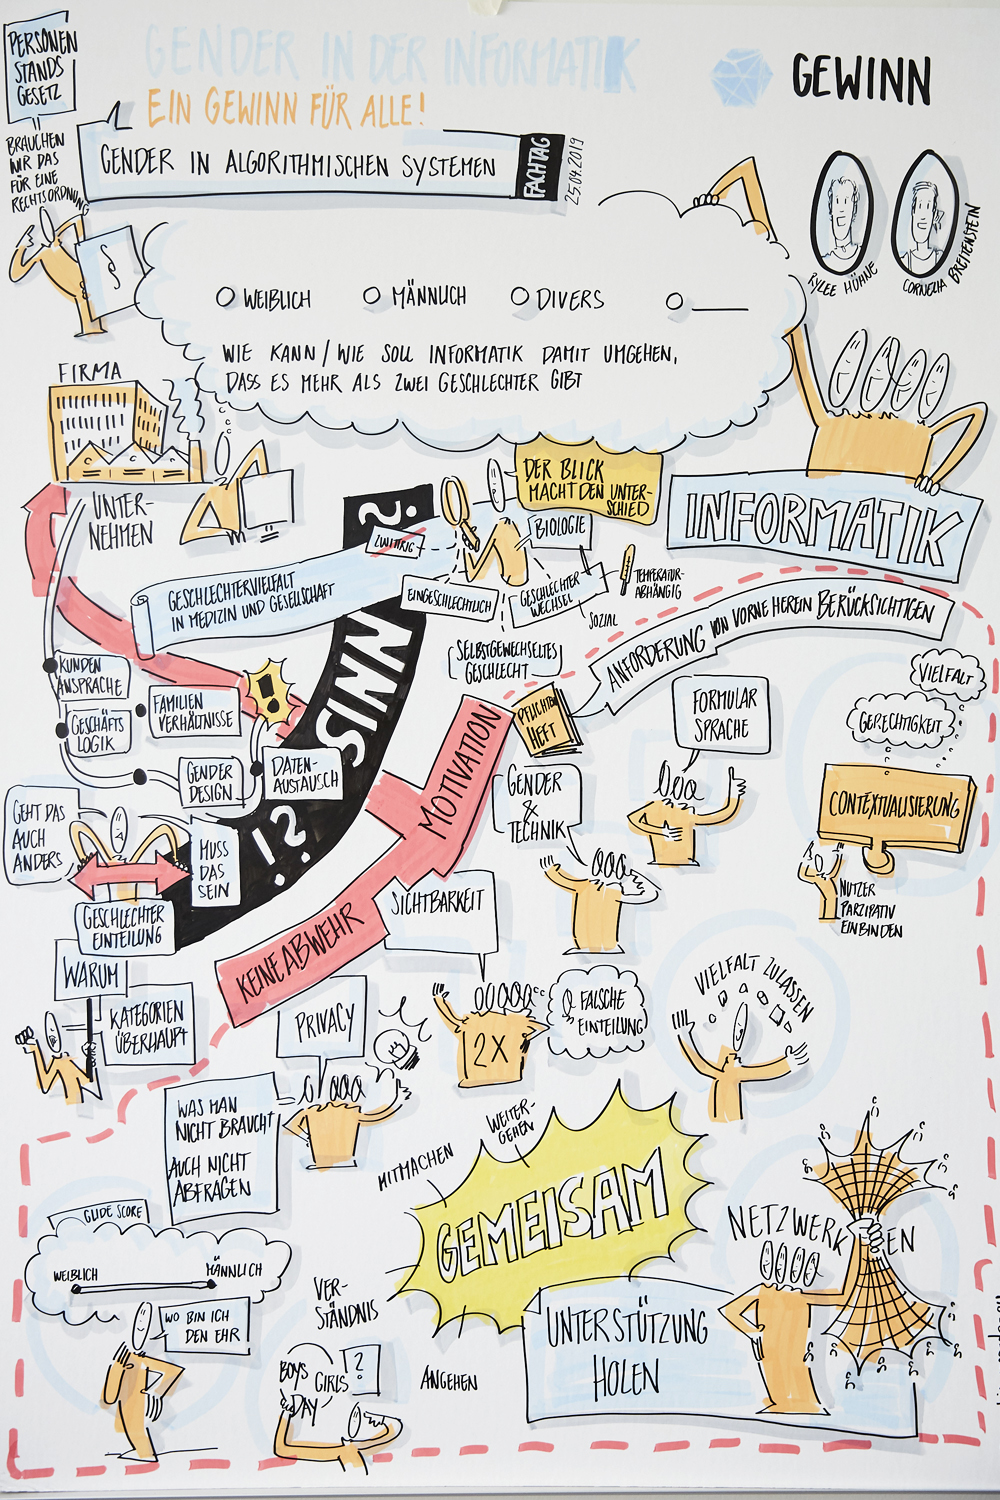 PERSONEN
STANDS
GESETZ
GENDER IN DER INFORMATIK
EIN GEWINN FÜR ALLE!
GEWINN
BRAUCHEN
WIR DAS
FÜR EINE
RECHTSORDNUNG
GENDER IN ALGORITHMISCHEN SYSTEMEN
FACHTAG
25.09.2019
§
RYLEE HÜHNE
CORNELIA BREITENSTEIN
WEIBLICH
MÄNNLICH
DIVERS
WIE KANN / WIE SOLL INFORMATIK DAMIT UMGEHEN,
DASS ES MEHR ALS ZWEI GESCHLECHTER GIBT
FIRMA
UNTER-
NEHMEN
DER BLICK
MACHT DEN UNTER-
SCHIED
INFORMATIK
?
ZWITTRIG
BIOLOGIE
GESCHLECHTERVIELFALT
IN MEDIZIN UND GESELLSCHAFT
EINGESCHLECHTLICH
GESCHLECHTER
WECHSEL
SOZIAL
TEMPERATUR-
ABHÄNGIG
SELBSTGEWECHSELTES
GESCHLECHT
ANFORDERUNG VON VORNE HEREIN BERÜCKSICHTIGEN
KUNDEN
ANSPRACHE
GESCHÄFTS
LOGIK
FAMILIEN
VERHÄLTNISSE
!
GENDER
DESIGN
DATEN-
AUSTAUSCH
SINN
!?
MOTIVATION
PFLICHTEN
HEFT
FORMULAR
SPRACHE
VIELFALT
GERECHTIGKEIT
CONTEXTUALISIERUNG
GENDER
&
TECHNIK
GEHT DAS
AUCH
ANDERS
MUSS
DAS
SEIN
GESCHLECHTER
EINTEILUNG
NUTZER
PARZIPATIV
EINBINDEN
KEINE ABWEHR
SICHTBARKEIT
WARUM
KATEGORIEN
ÜBERHAUPT
PRIVACY
2X
FALSCHE
EINTEILUNG
VIELFALT ZULASSEN
WAS MAN
NICHT BRAUCHT
AUCH NICHT
ABFRAGEN
MITMACHEN
WEITER-
GEHEN
GEMEISAM
GLIDE SCORE
WEIBLICH
MÄNNLICH
WO BIN ICH
DEN EHR
VER-
STÄNDNIS
BOYS
GIRLS
DAY
?
ANGEHEN
NETZWERKEN
UNTERSTÜTZUNG
HOLEN